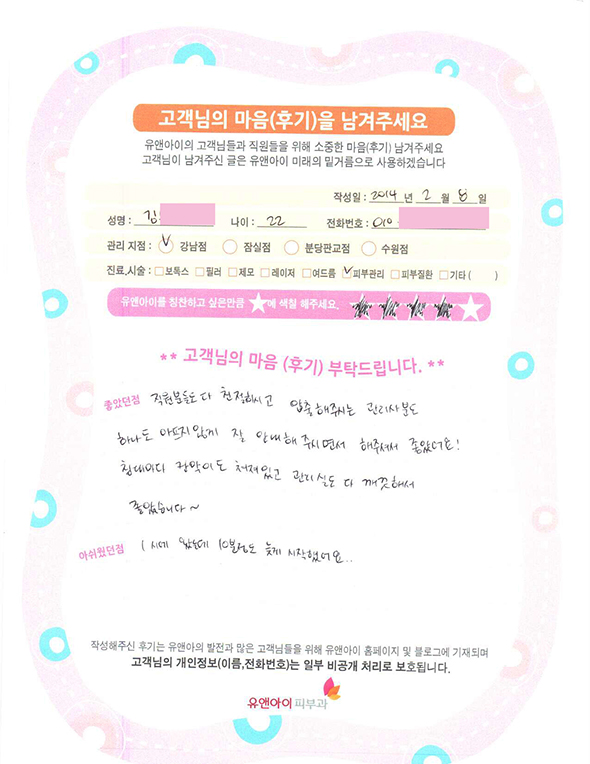 고객님의 마음(후기)을 남겨주세요
유앤아이의 고객님들과 직원들을 위해 소중한 마음(후기) 남겨주세요
고객님이 남겨주신 글은 유앤아이 미래의 밑거름으로 사용하겠습니다
작성일 : 2014 년 2 월 8 일
성명 : 김 나이 : 22 전화번호 : 010
관리 지점 : 강남점 잠실점 분당판교점 수원점
진료,시술 : 보톡스 필러 제모 레이저 여드름 피부관리 피부질환 기타 ( )
유앤아이를 칭찬하고 싶은만큼 ★에 색칠 해주세요.
** 고객님의 마음 (후기) 부탁드립니다. **
좋았던점 직원분들도 다 친절하시고 압출해주시는 관리사분도
하나도 아프지않게 잘 안내해 주시면서 해주셔서 좋았어요!
침대마다 장막이도 쳐져있고 관리실도 다 깨끗해서
좋았습니다~
아쉬웠던점 1시에 왔는데 10분정도 늦게 시작했어요..
작성해주신 후기는 유앤아의 발전과 많은 고객님들을 위해 유앤아이 홈페이지 및 블로그에 기재되며
고객님의 개인정보(이름,전화번호)는 일부 비공개 처리로 보호됩니다.
유앤아이 피부과